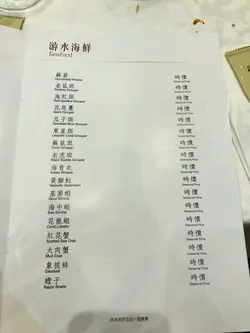 游水海鮮
Seafood
蘇眉
Humphead Wrasse
時價
Seasonal Price
老鼠斑
時價
Seasonal Price
海紅斑
Red Spotted Grouper
時價
Seasonal Price
花尾躉
Giant Grouper
時價
Seasonal Price
瓜子斑
Speckled Blue Grouper
時價
Seasonal Price
東星斑
Leopard Coral Grouper
時價
Seasonal Price
蘇鼠斑
時價
Seasonal Price
老虎斑
時價
Seasonal Price
海青衣
Green Wrasse
時價
Seasonal Price
黃腳𩶘
Yellowfin Seabream
時價
Seasonal Price
基圍蝦
Shrimp
時價
Seasonal Price
海中蝦
Sea Shrimp
時價
Seasonal Price
花龍蝦
Coral Lobster
時價
Seasonal Price
紅花蟹
Spotted Sea Crab
時價
Seasonal Price
大肉蟹
Mud Crab
時價
Seasonal Price
象拔蚌
Geoduck
時價
Seasonal Price
蟶子
Razor Shells
時價
Seasonal Price